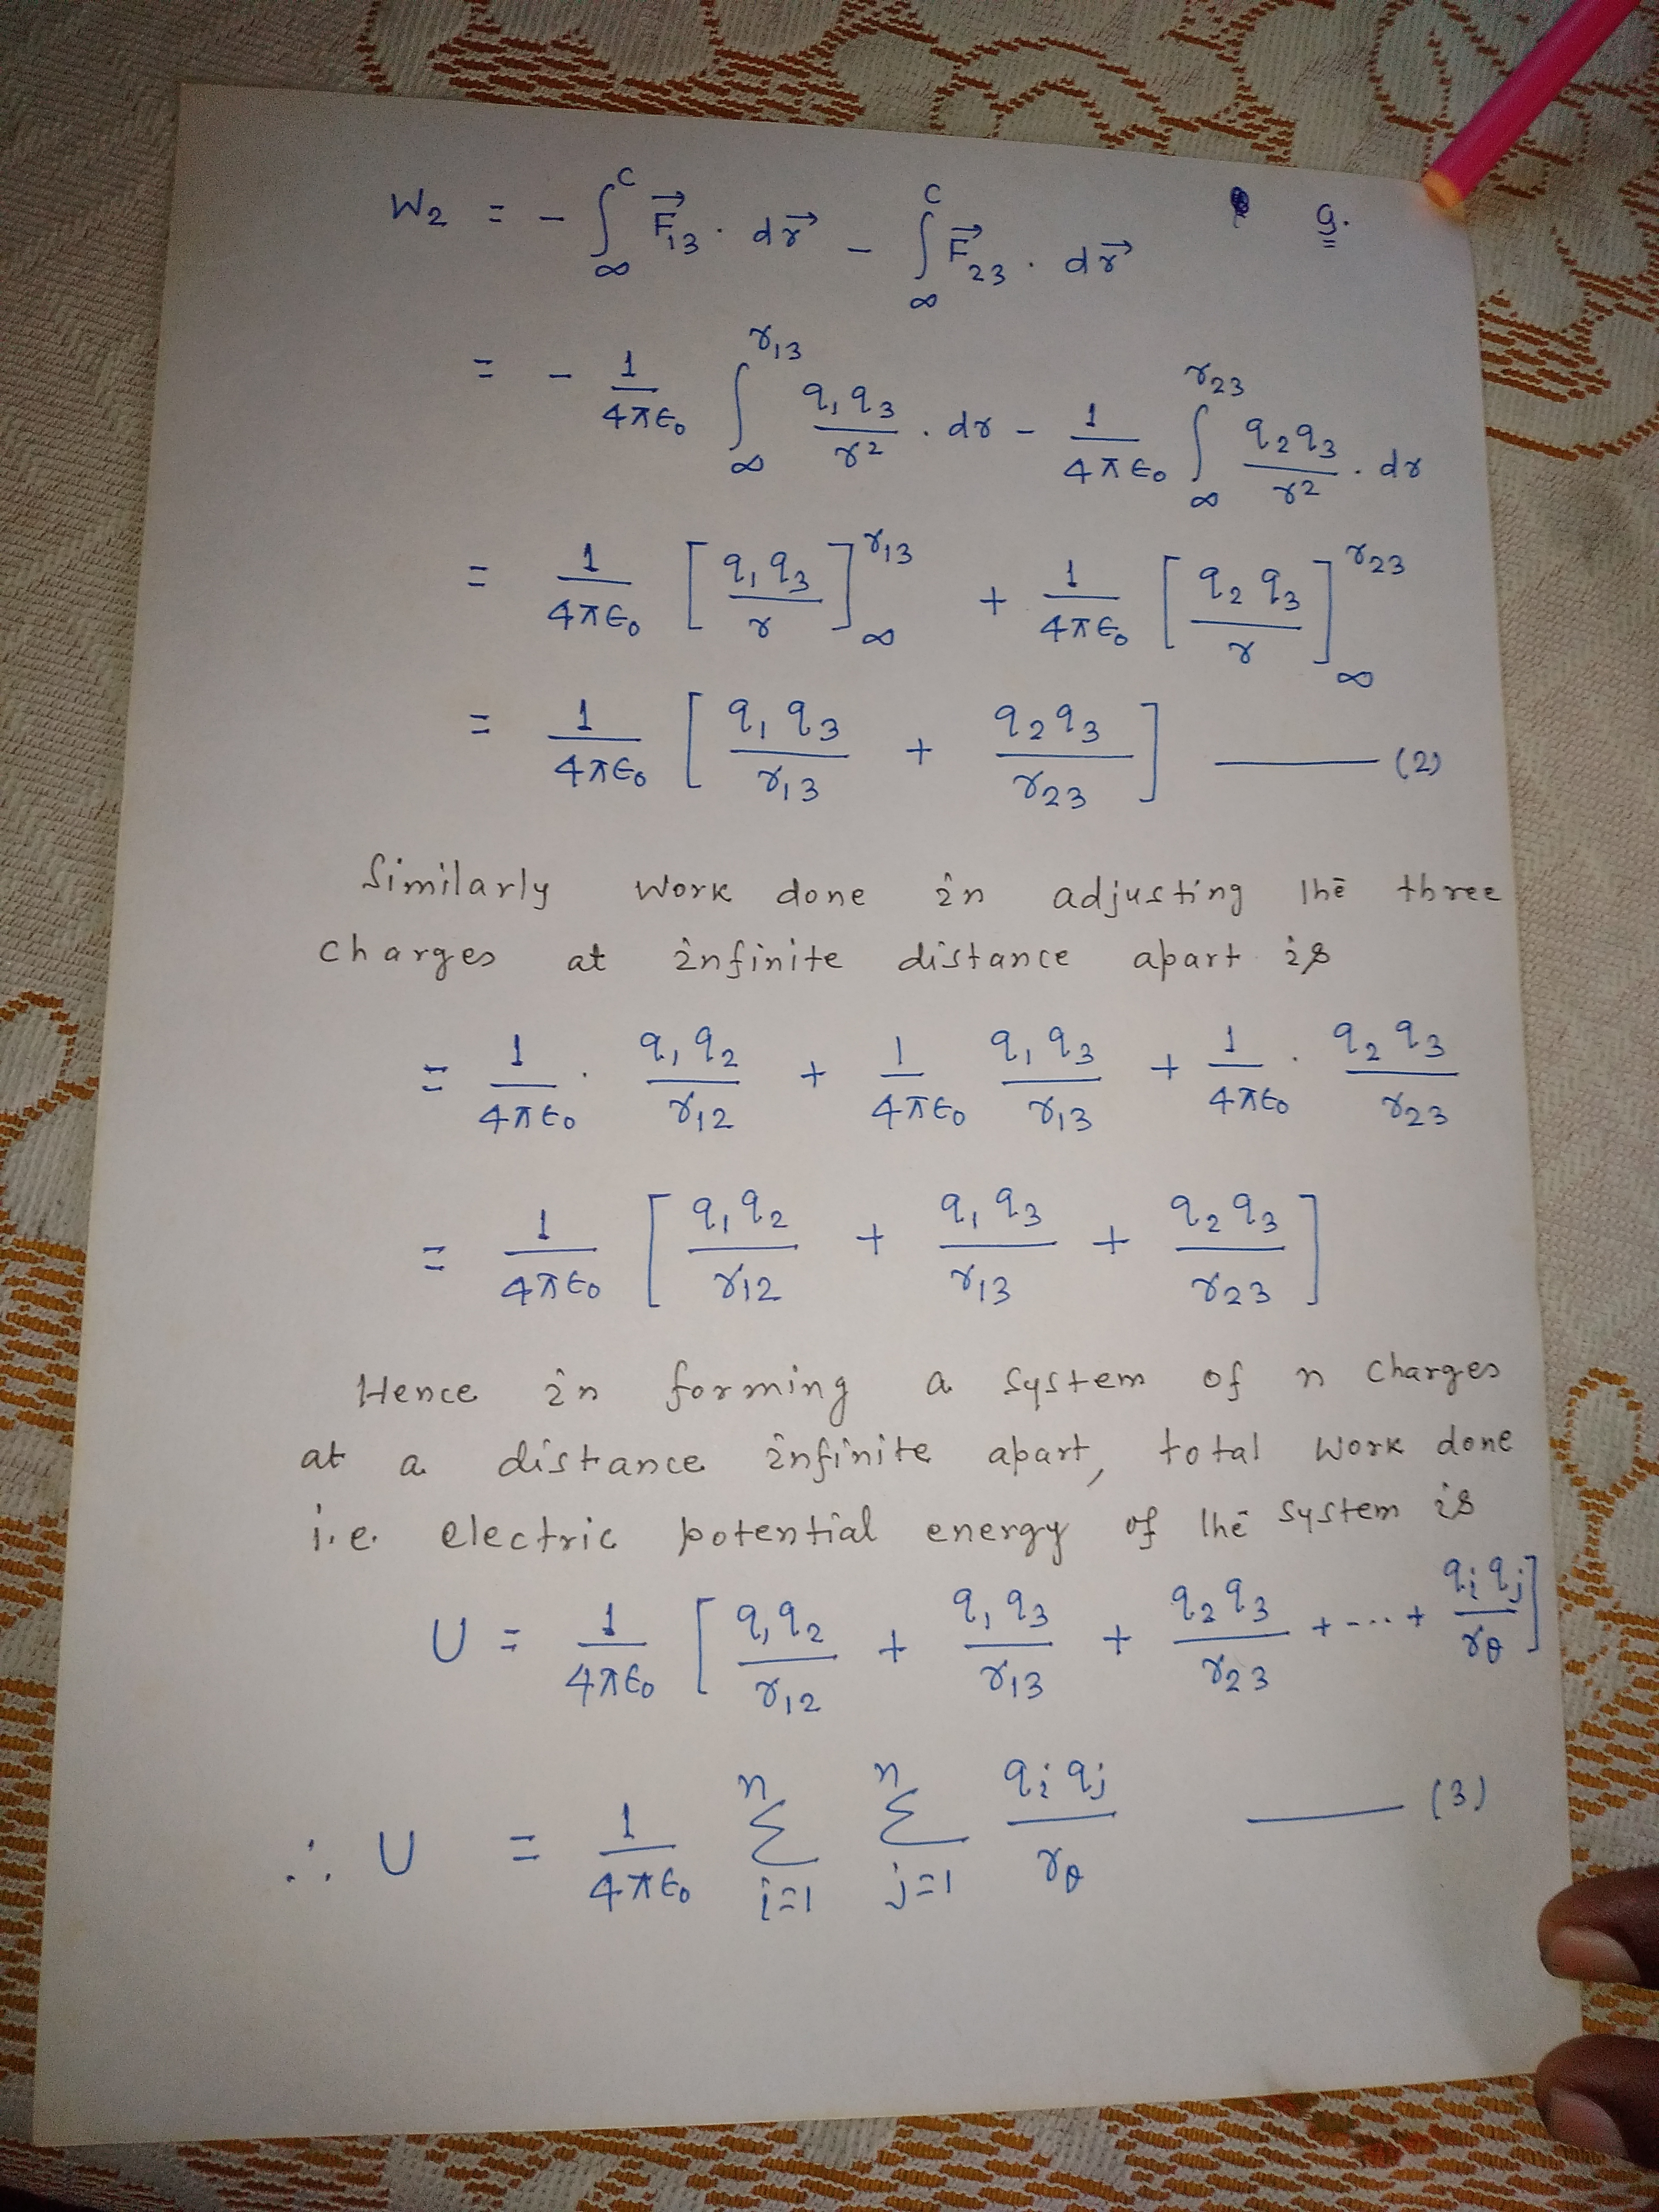 9.
W₂ = - ∫_∞^C F⃗₁₃ . dr⃗ - ∫_∞^C F⃗₂₃ . dr⃗
= - 1/4πϵ₀ ∫_∞^r₁₃ q₁q₃/r² . dr - 1/4πϵ₀ ∫_∞^r₂₃ q₂q₃/r² . dr
= 1/4πϵ₀ [q₁q₃/r]_∞^r₁₃ + 1/4πϵ₀ [q₂q₃/r]_∞^r₂₃
= 1/4πϵ₀ [q₁q₃/r₁₃ + q₂q₃/r₂₃] —— (2)
Similarly work done in adjusting the three
charges at infinite distance apart is
= 1/4πϵ₀ . q₁q₂/r₁₂ + 1/4πϵ₀ q₁q₃/r₁₃ + 1/4πϵ₀ . q₂q₃/r₂₃
= 1/4πϵ₀ [q₁q₂/r₁₂ + q₁q₃/r₁₃ + q₂q₃/r₂₃]
Hence in forming a system of n charges
at a distance infinite apart, total work done
i.e. electric potential energy of the system is
U = 1/4πϵ₀ [q₁q₂/r₁₂ + q₁q₃/r₁₃ + q₂q₃/r₂₃ + --- + qᵢqⱼ/r_θ]
∴ U = 1/4πϵ₀ Σ_{i=1}^n Σ_{j=1}^n qᵢqⱼ/r_θ —— (3)